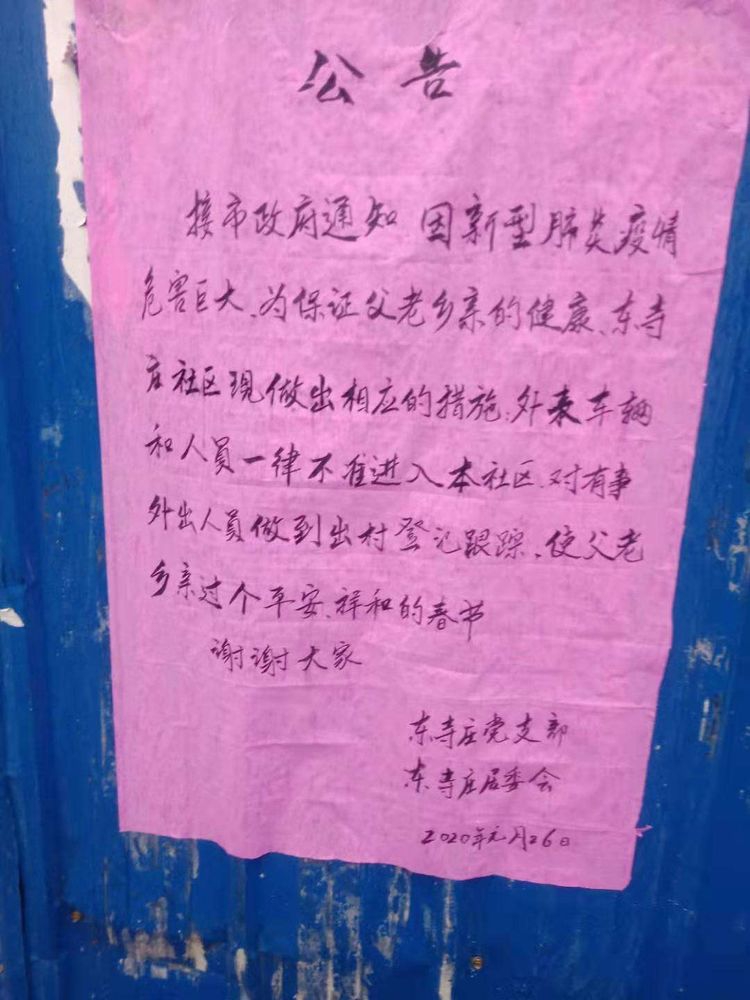 公告
接市政府通知 因新型肺炎疫情
危害巨大、为保证父老乡亲的健康、东寺
庄社区现做出相应的措施、外来车辆
和人员一律不准进入本社区、对有事
外出人员做到出村登记跟踪、使父老
乡亲过个平安、祥和的春节
谢谢大家
东寺庄党支部
东寺庄居委会
2020年元月26日